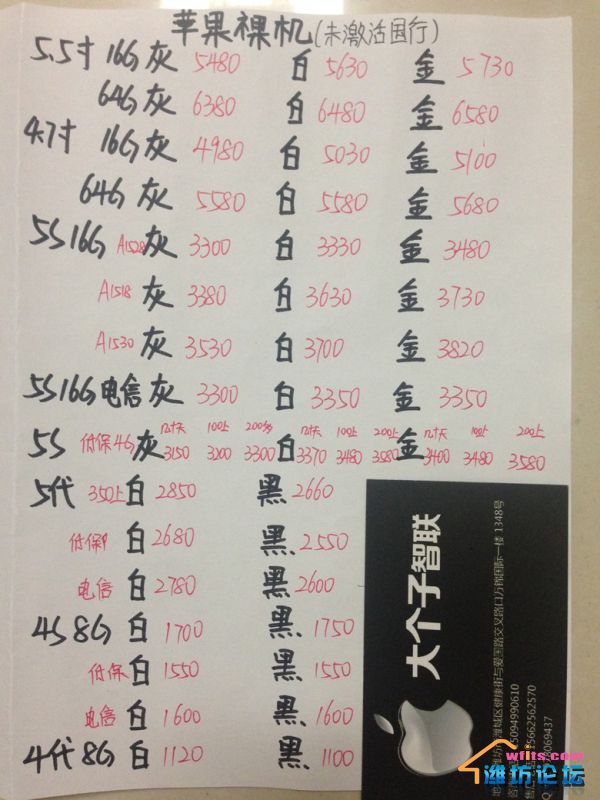 苹果裸机(未激活国行)
5.5寸 16G 灰 5480 白 5630 金 5730
64G 灰 6380 白 6480 金 6580
4.7寸 16G 灰 4980 白 5030 金 5100
64G 灰 5580 白 5580 金 5680
5S 16G A1528 灰 3300 白 3330 金 3480
A1518 灰 3380 白 3630 金 3730
A1530 灰 3530 白 3700 金 3820
5S 16G 电信 灰 3300 白 3350 金 3350
几十天 100上 200多 几十天 100上 200上 几十天 100上 200上
5S 低保4G 灰 3150 3200 3300 白 3370 3480 3580 金 3400 3480 3580
5代 350上 白 2850 黑 2660
低保 白 2680 黑 2550
电信 白 2780 黑 2600
4S 8G 白 1700 黑 1750
低保 白 1550 黑 1550
电信 白 1600 黑 1600
4代 8G 白 1120 黑 1100
大个子智联
潍城区健康街与爱国路交叉路口万锦国际一楼 1348号
15094990610
15662562570
8069437
wfits.com
潍坊论坛